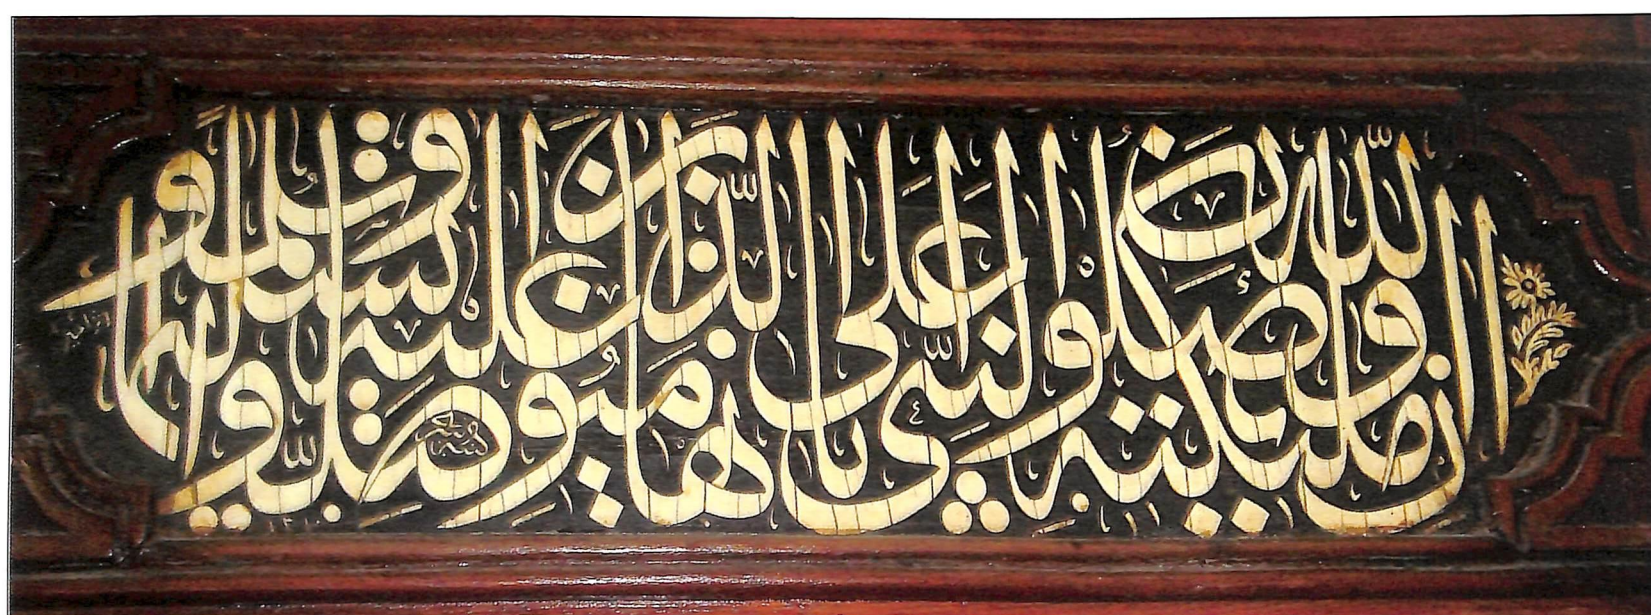 ان الله وملئكته يصلون على النبى يا ايها الذين امنوا صلوا عليه وسلموا تسليما